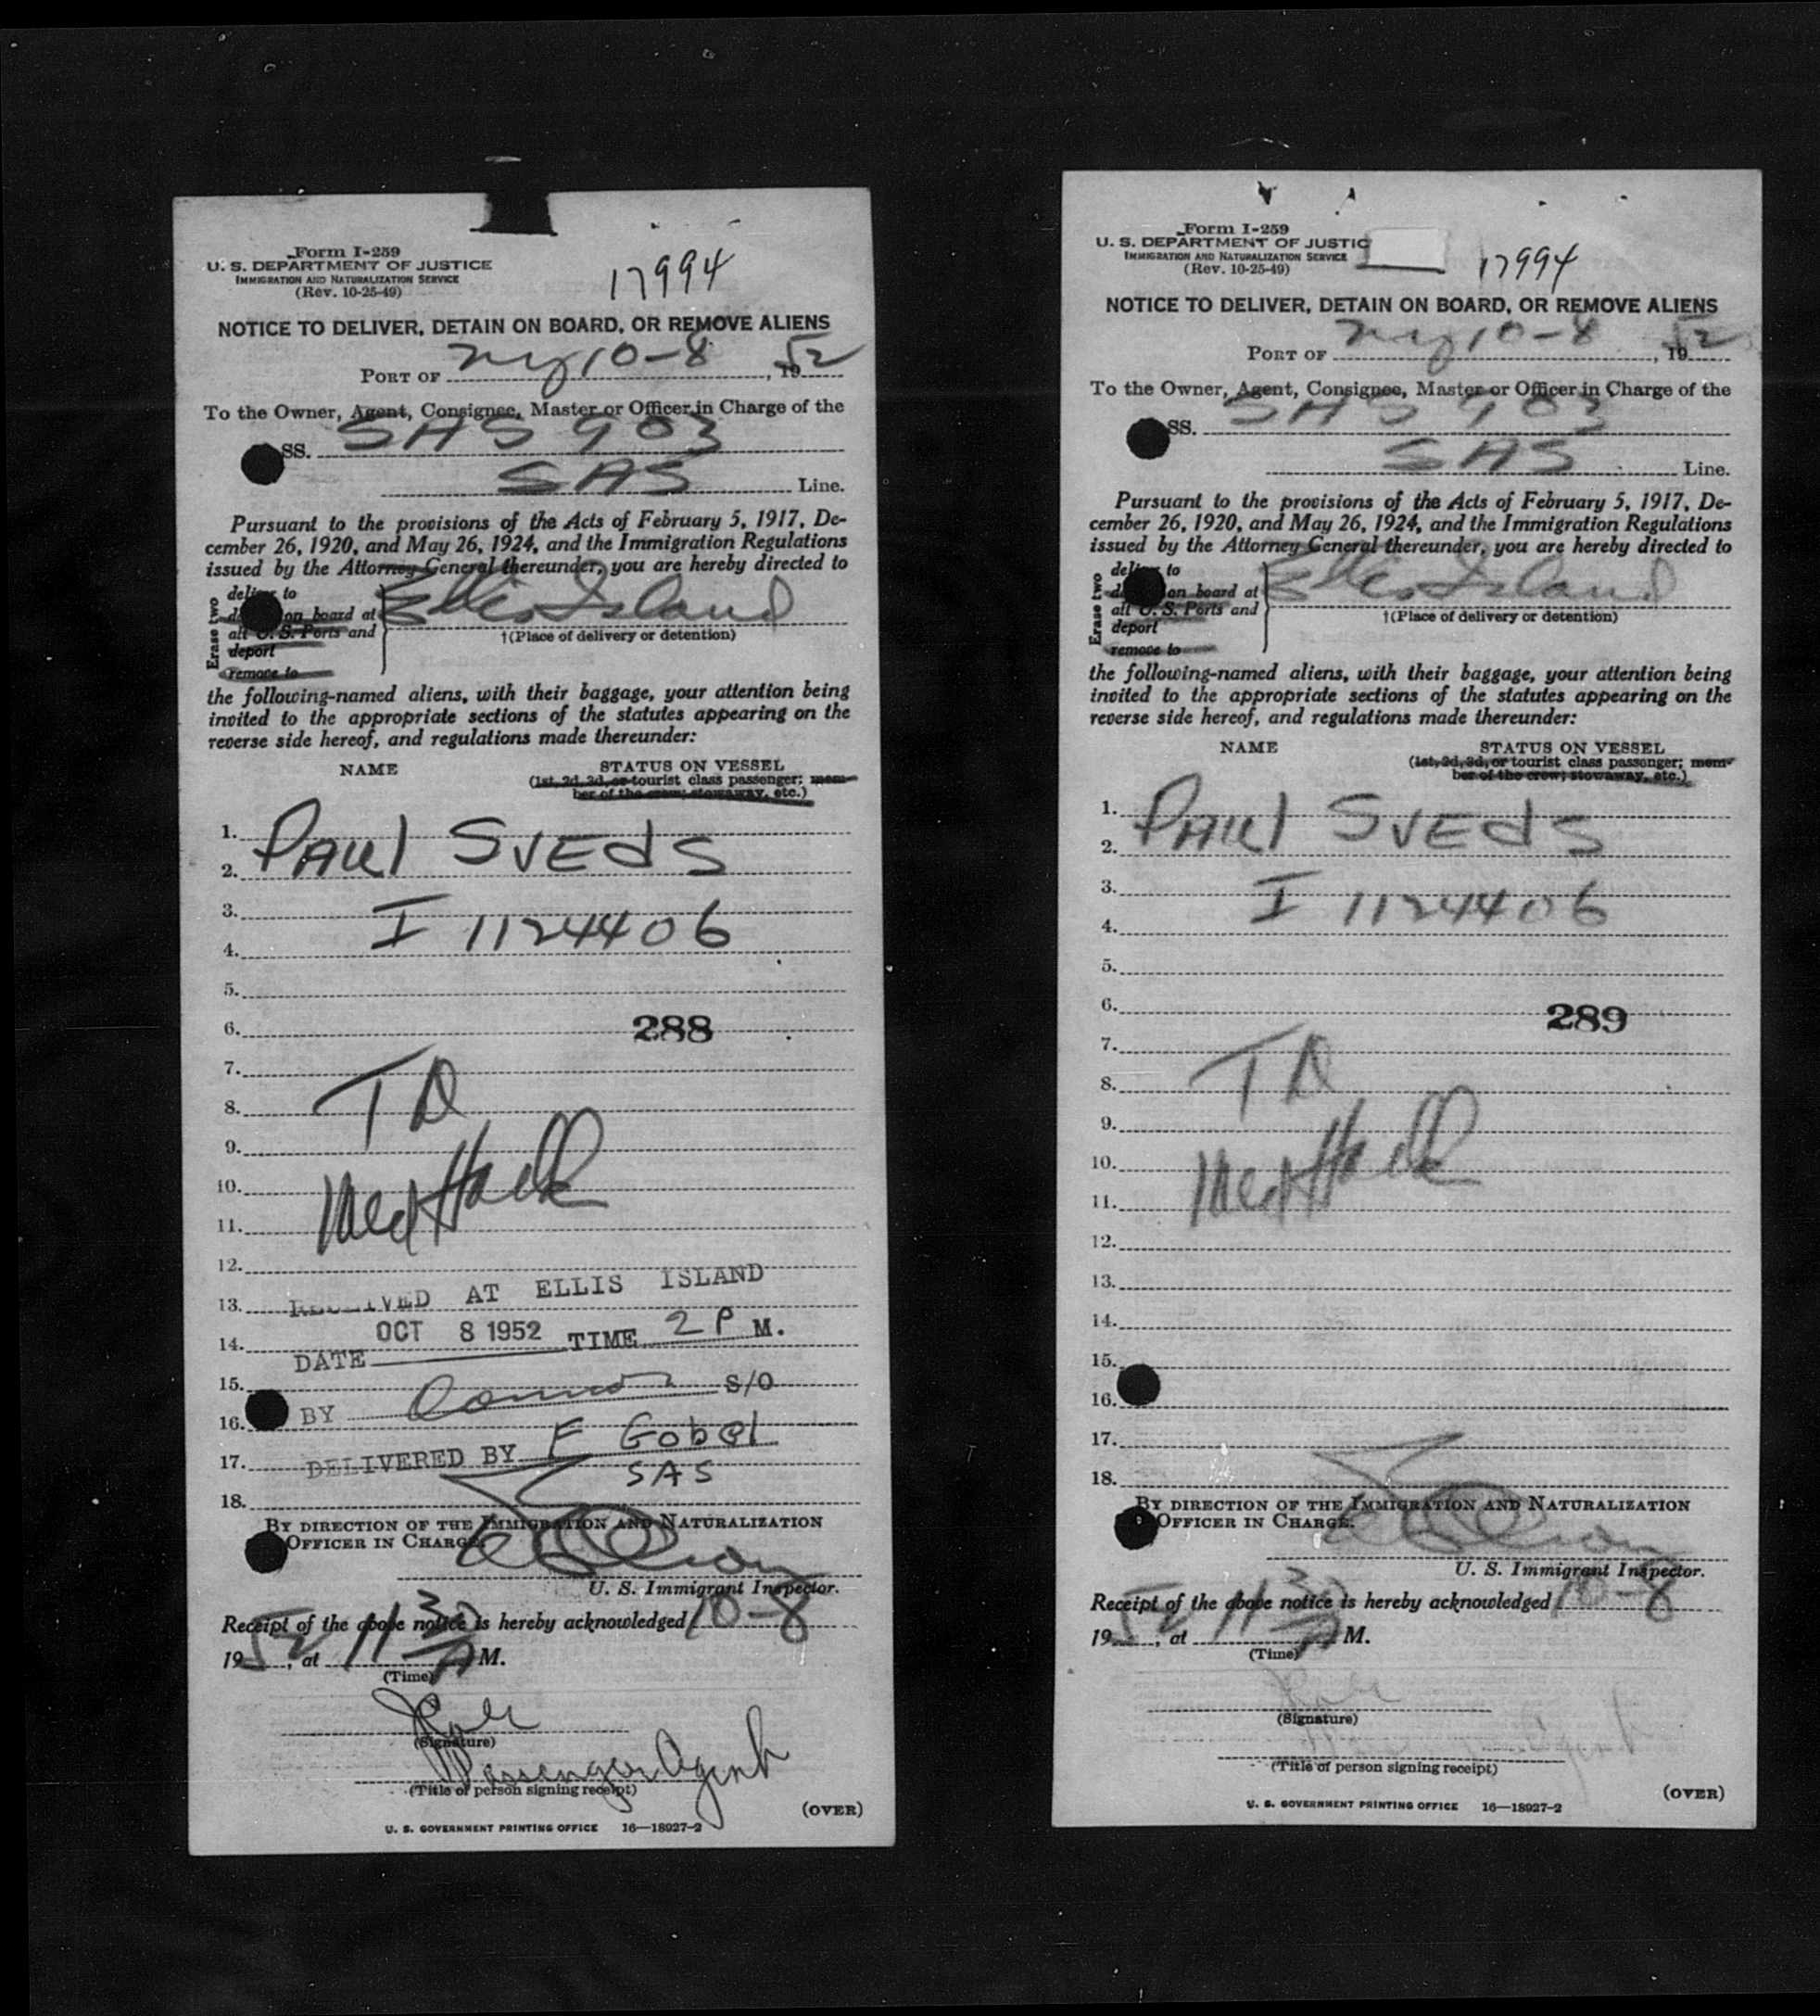 Form I-259
U. S. DEPARTMENT OF JUSTICE
IMMIGRATION AND NATURALIZATION SERVICE
(Rev. 10-25-49)
17994
NOTICE TO DELIVER, DETAIN ON BOARD, OR REMOVE ALIENS
PORT OF ny 10-8, 1952
To the Owner, Agent, Consignee, Master or Officer in Charge of the
SS. SAS 903
SAS Line.
Pursuant to the provisions of the Acts of February 5, 1917, De-
cember 26, 1920, and May 26, 1924, and the Immigration Regulations
issued by the Attorney General thereunder, you are hereby directed to
Erase two
deliver to
on board at
all U. S. Ports and
deport
remove to
Ellis Island
†(Place of delivery or detention)
the following-named aliens, with their baggage, your attention being
invited to the appropriate sections of the statutes appearing on the
reverse side hereof, and regulations made thereunder:
NAME STATUS ON VESSEL
(1st, 2d, 3d, or tourist class passenger; mem-
ber of the crew; stowaway, etc.)
1.
2. PAUL SVEdS
3.
4. I 1124406
5.
6. 288
7.
8. TD
9.
10.
11. Med
12.
13. RECEIVED AT ELLIS ISLAND
14. DATE OCT 8 1952 TIME 2 P M.
15.
16. BY Connor S/O
17. DELIVERED BY E Gobel
SAS
18.
BY DIRECTION OF THE IMMIGRATION AND NATURALIZATION
OFFICER IN CHARGE.
U. S. Immigrant Inspector.
Receipt of the above notice is hereby acknowledged 10-8
1952, at 11 30 A M.
(Time)
(Signature)
Passenger Agent
(Title of person signing receipt)
(OVER)
U. S. GOVERNMENT PRINTING OFFICE 16—18927-2
Form I-259
U. S. DEPARTMENT OF JUSTIC
IMMIGRATION AND NATURALIZATION SERVICE
(Rev. 10-25-49)
17994
NOTICE TO DELIVER, DETAIN ON BOARD, OR REMOVE ALIENS
PORT OF ny 10-8, 1952
To the Owner, Agent, Consignee, Master or Officer in Charge of the
SS. SAS 903
SAS Line.
Pursuant to the provisions of the Acts of February 5, 1917, De-
cember 26, 1920, and May 26, 1924, and the Immigration Regulations
issued by the Attorney General thereunder, you are hereby directed to
Erase two
deliver to
on board at
all U. S. Ports and
deport
remove to
Ellis Island
†(Place of delivery or detention)
the following-named aliens, with their baggage, your attention being
invited to the appropriate sections of the statutes appearing on the
reverse side hereof, and regulations made thereunder:
NAME STATUS ON VESSEL
(1st, 2d, 3d, or tourist class passenger; mem-
ber of the crew; stowaway, etc.)
1.
2. PAUL SVEdS
3.
4. I 1124406
5.
6. 289
7.
8. TD
9.
10.
11. Med
12.
13.
14.
15.
16.
17.
18.
BY DIRECTION OF THE IMMIGRATION AND NATURALIZATION
OFFICER IN CHARGE.
U. S. Immigrant Inspector.
Receipt of the above notice is hereby acknowledged 10-8
1952, at 11 30 A M.
(Time)
(Signature)
(Title of person signing receipt)
(OVER)
U. S. GOVERNMENT PRINTING OFFICE 16—18927-2